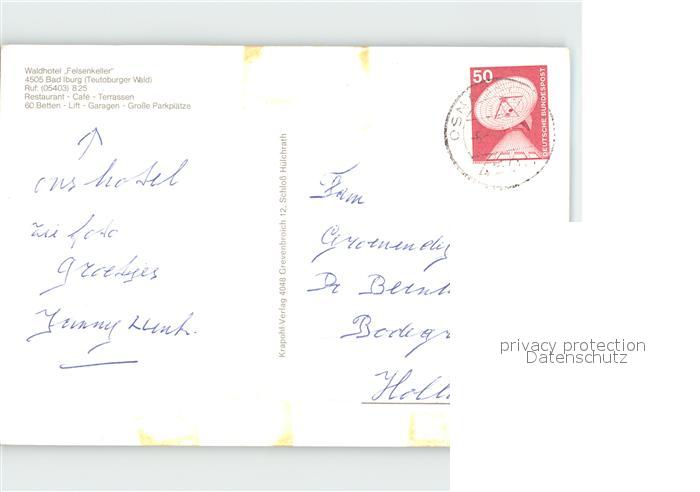 Waldhotel „Felsenkeller"
4505 Bad Iburg (Teutoburger Wald)
Ruf: (05403) 825
Restaurant - Café - Terrassen
60 Betten - Lift - Garagen - Große Parkplätze
ons hotel
zie foto
Groetjes
Jenny
Krapohl-Verlag 4048 Grevenbroich 12, Schloß Hülchrath
50
DEUTSCHE BUNDESPOST
OSN
Fam
Groenendij
Dr Bernh
Bodegr
Holl
privacy protection
Datenschutz